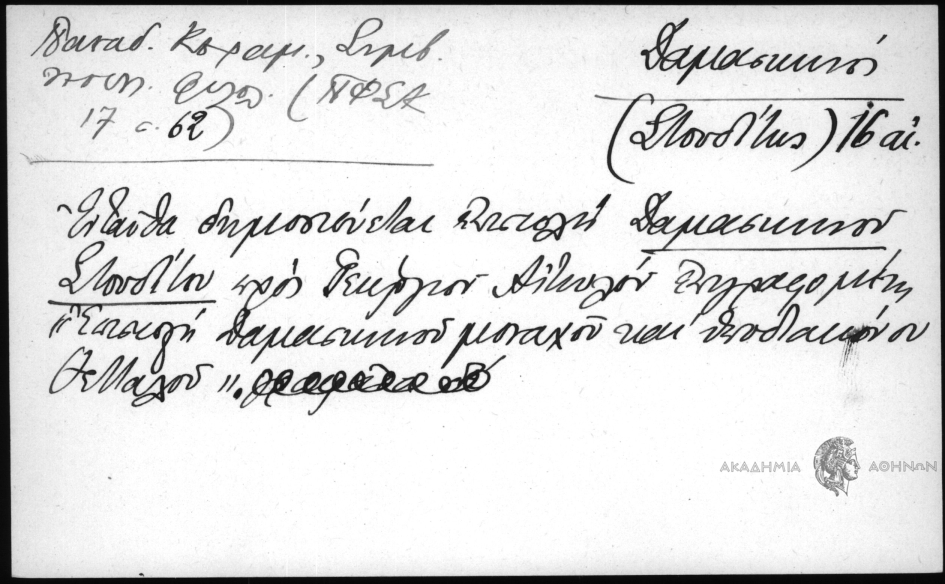 Παπαδ. Κεραμ., Συμβ.
φιλ. (ΠΦΣΑ
17 σ. 62)
Δαμασκηνός
(Στουδίτης) 16 αι.
Ἐνταῦθα δημοσιεύεται ἐπιστολή Δαμασκηνοῦ
Στουδίτου πρός Γεώργιον Αἰτωλόν ἐπιγραφομένη
"Ἐπιστολή Δαμασκηνοῦ μοναχοῦ καί ὑποδιακόνου
Θετταλοῦ".
ΑΚΑΔΗΜΙΑ ΑΘΗΝΩΝ